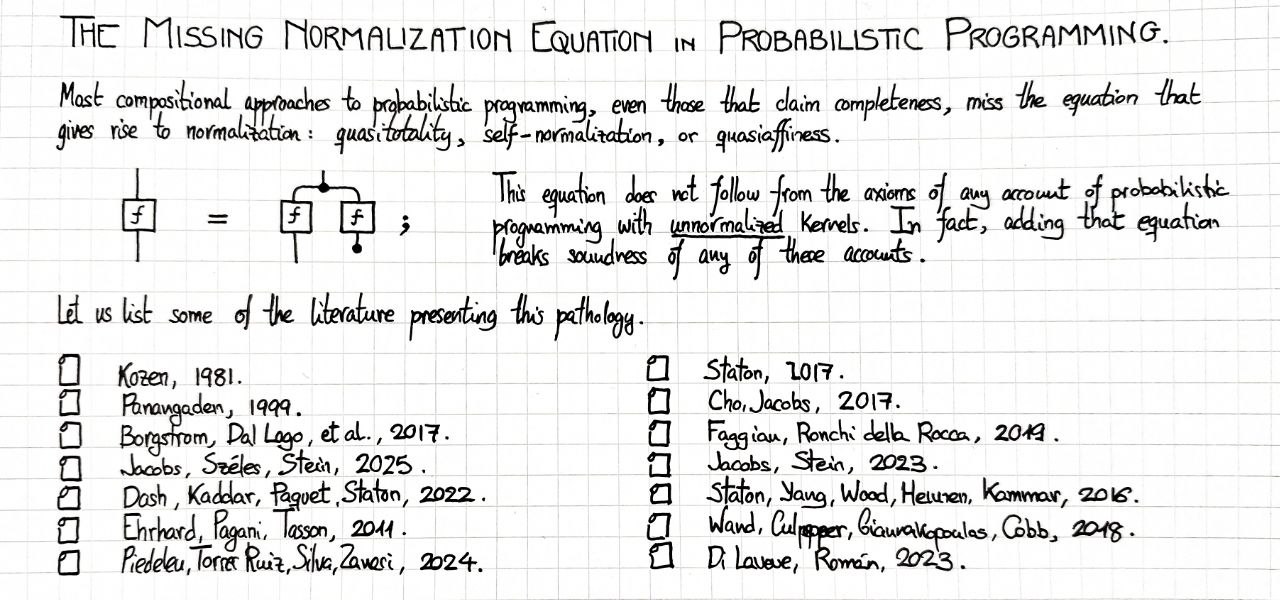 THE MISSING NORMALIZATION EQUATION IN PROBABILISTIC PROGRAMMING.
Most compositional approaches to probabilistic programming, even those that claim completeness, miss the equation that
gives rise to normalization: quasitotality, self-normalization, or quasiaffiness.
f = f f ;
This equation does not follow from the axioms of any account of probabilistic
programming with unnormalized Kernels. In fact, adding that equation
breaks soundness of any of these accounts.
Let us list some of the literature presenting this pathology.
Kozen, 1981.
Panangaden, 1999.
Borgstrom, Dal Lago, et al., 2017.
Jacobs, Széles, Stein, 2025.
Dash, Kaddar, Paquet, Staton, 2022.
Ehrhard, Pagani, Tasson, 2011.
Piedeleu, Torres Ruiz, Silva, Zanasi, 2024.
Staton, 2017.
Cho, Jacobs, 2017.
Faggian, Ronchi della Rocca, 2019.
Jacobs, Stein, 2023.
Staton, Yang, Wood, Heunen, Kammar, 2016.
Wand, Culpepper, Giannakopoulos, Cobb, 2018.
Di Lavore, Román, 2023.